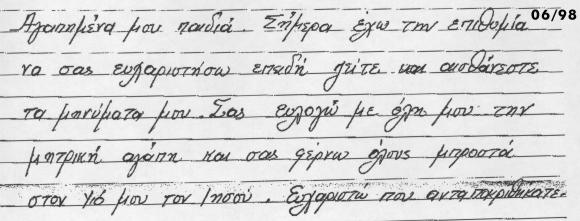 06/98
Αγαπημένα μου παιδιά. Σήμερα έχω την επιθυμία
να σας ευχαριστήσω επειδή ζείτε και αισθάνεστε
τα μηνύματα μου. Σας ευλογώ με όλη μου την
μητρική αγάπη και σας φέρνω όλους μπροστά
στον Υιό μου τον Ιησού. Ευχαριστώ που ανταποκριθήκατε.